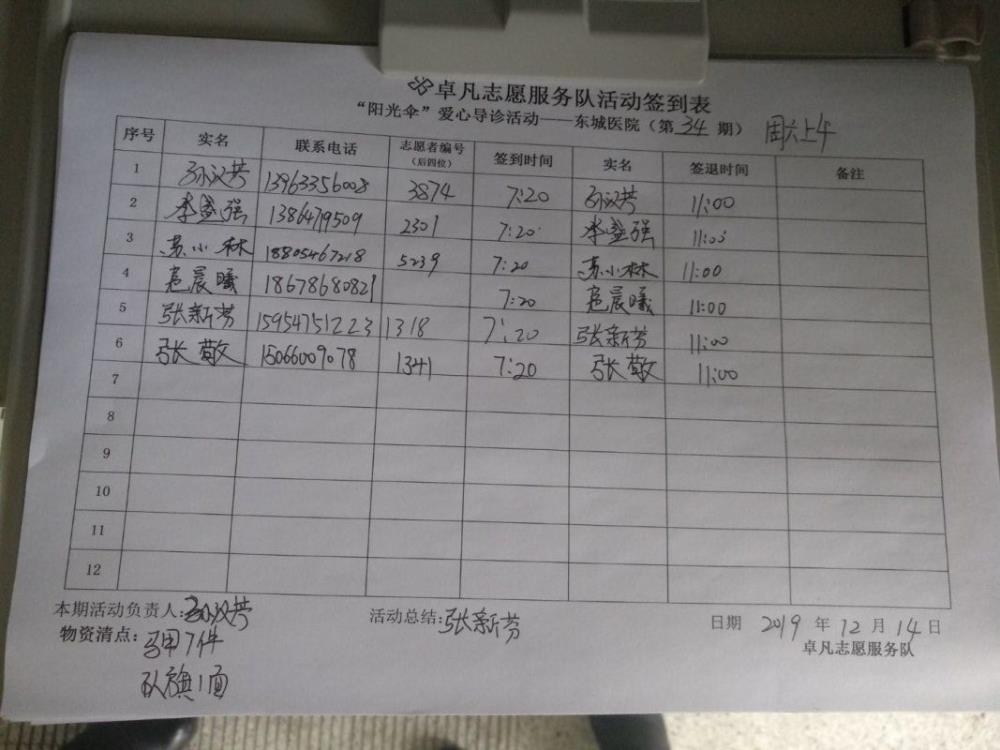 卓凡志愿服务队活动签到表
“阳光伞”爱心导诊活动——东城医院（第 34 期） 周六上午
序号 实名 联系电话 志愿者编号（后四位） 签到时间 实名 签退时间 备注
1 孙汉芳 13963356008 3874 7:20 孙汉芳 11:00
2 李盛强 1386479509 2301 7:20 李盛强 11:00
3 苏小林 18805467218 5239 7:20 苏小林 11:00
4 扈晨曦 18678680821 7:20 扈晨曦 11:00
5 张新芳 15954751223 1318 7:20 张新芳 11:00
6 张敬 15066009078 1341 7:20 张敬 11:00
7
8
9
10
11
12
本期活动负责人：孙汉芳 活动总结：张新芳 日期 2019 年 12 月 14 日
物资清点：马甲7件 卓凡志愿服务队
队旗1面